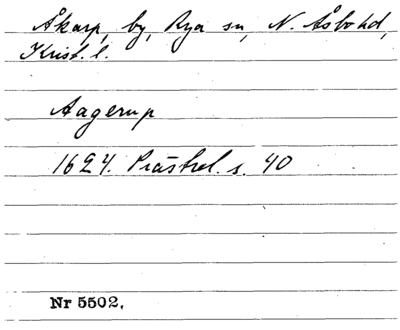 Åkarp, by, Rya sn, N. Åsbo hd,
Krist. l.
Aagerup
1624. Prästrel. s. 40
Nr 5502.